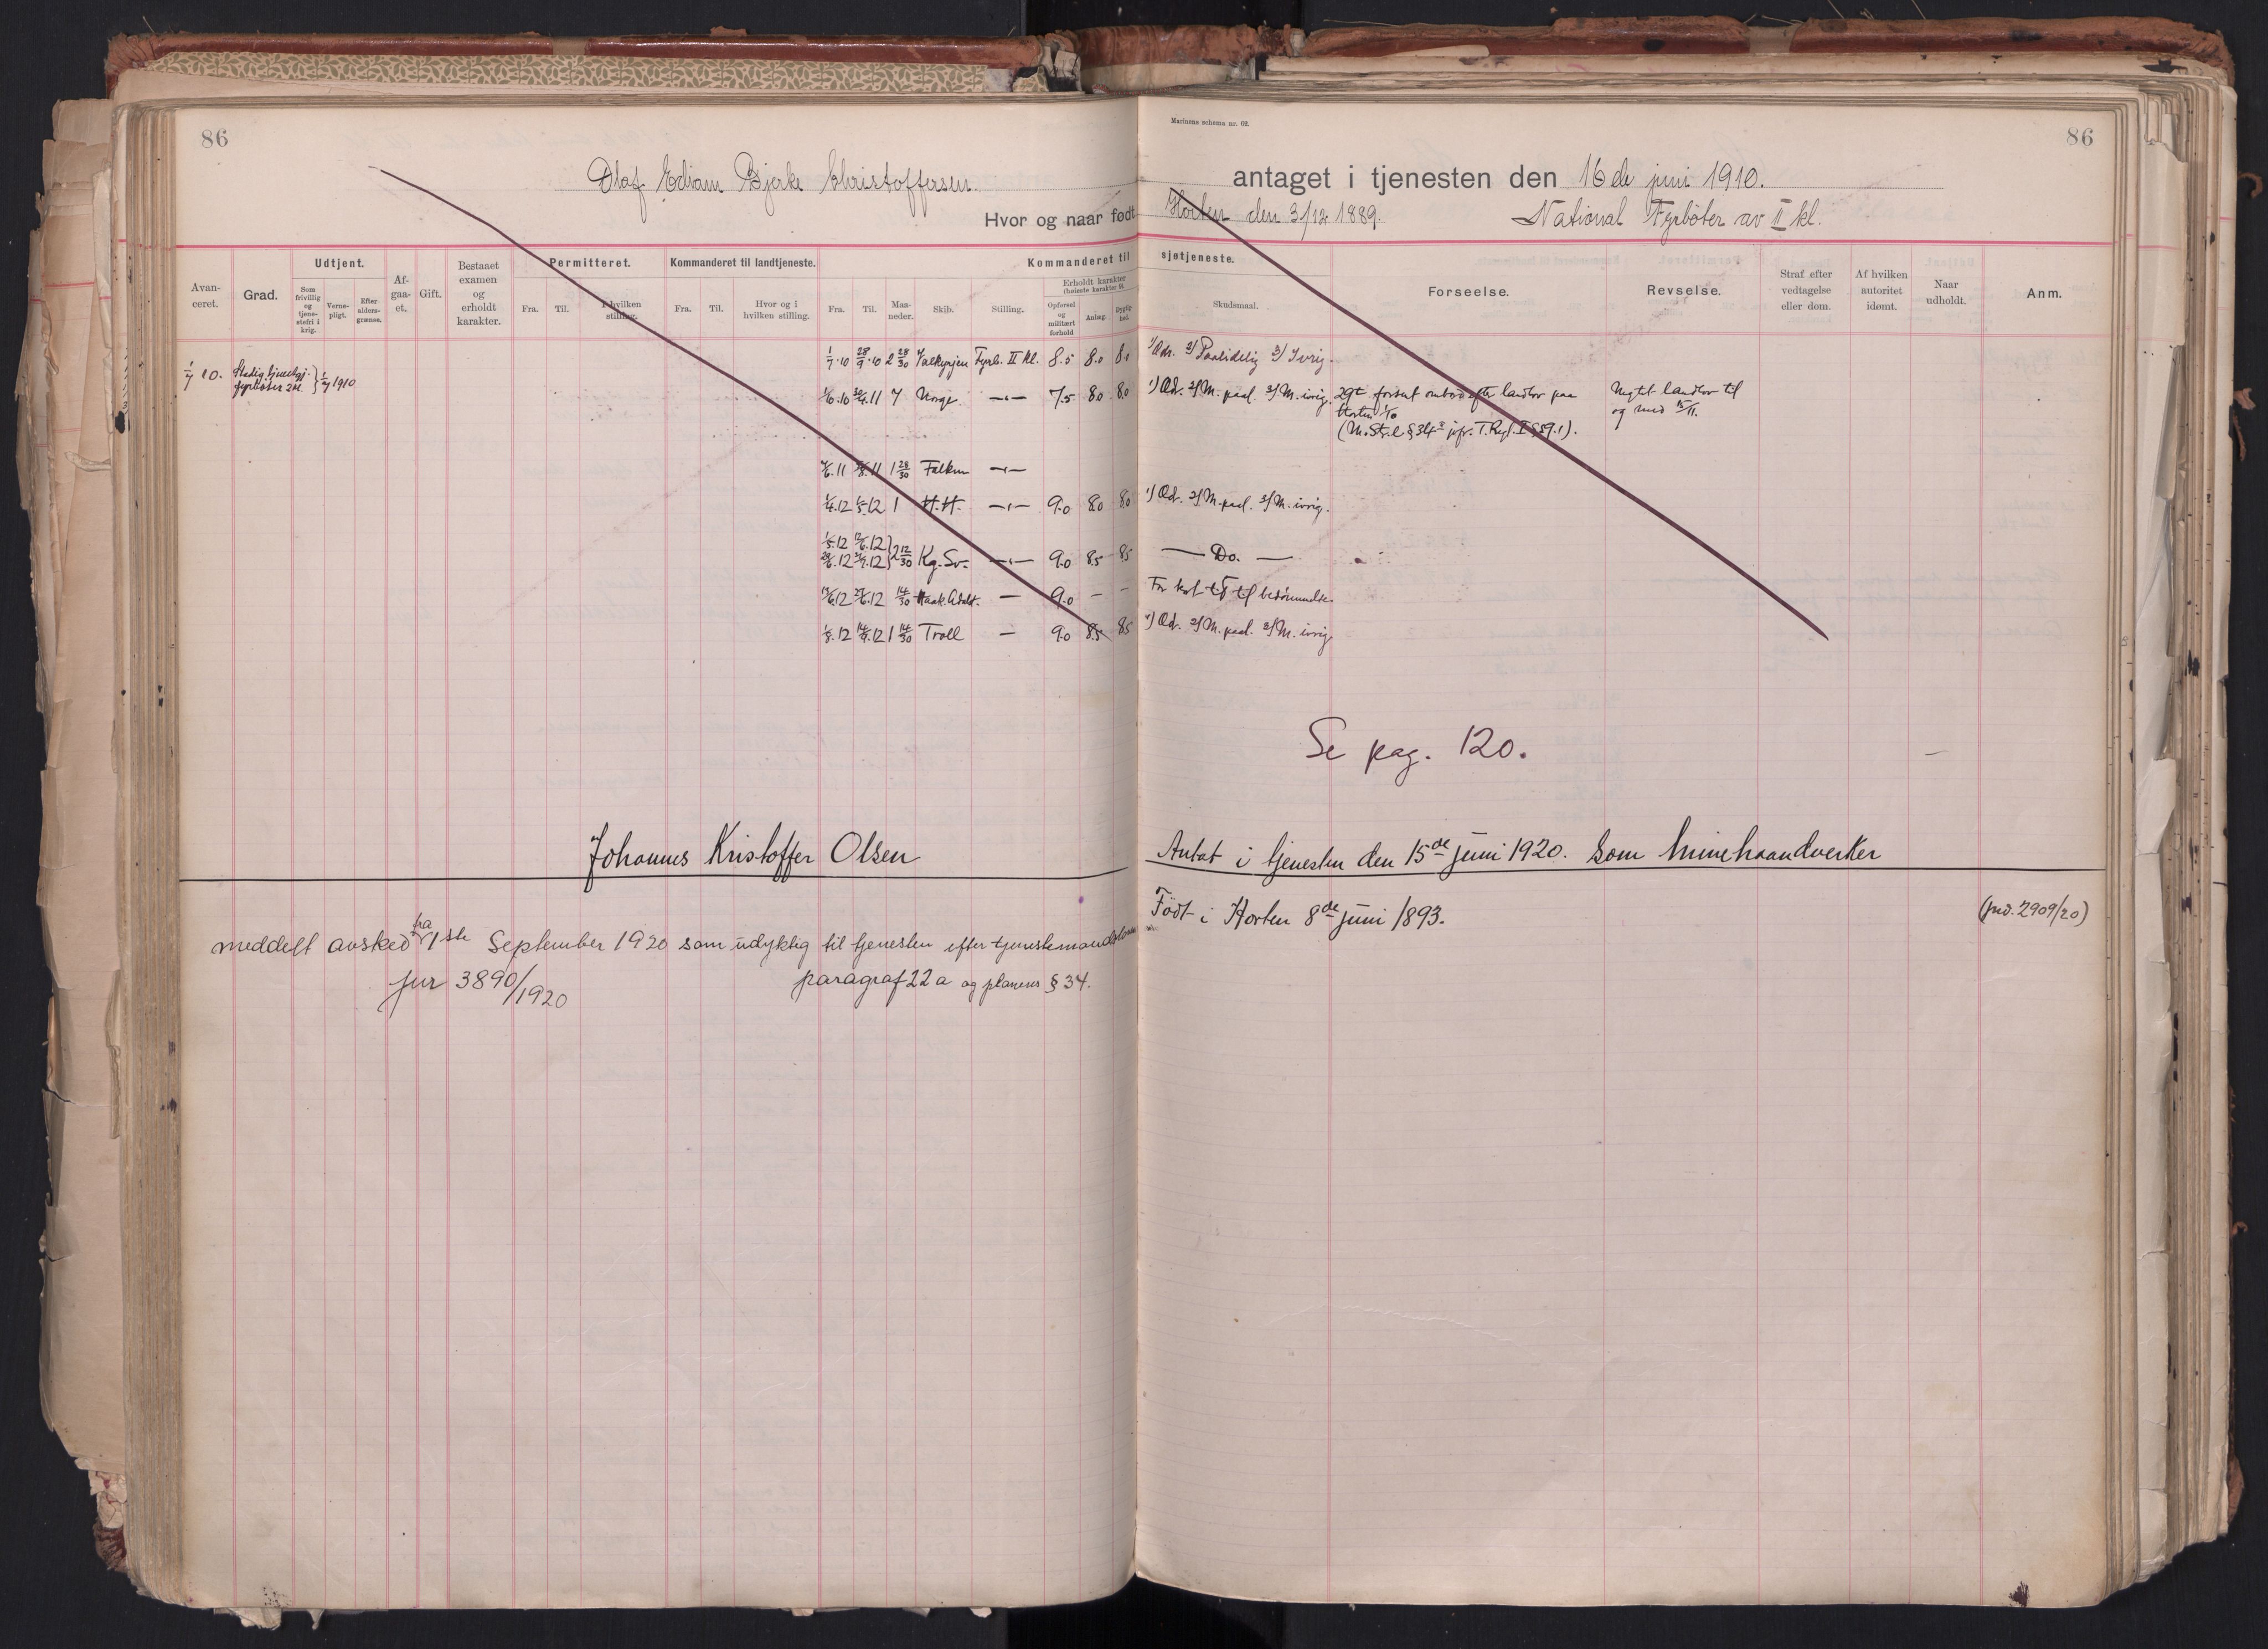 86
Marinens schema nr. 62.
86
Olaf Bjerke Christoffersen.
antaget i tjenesten den 16de juni 1910.
Hvor og naar født Horten den 3/12 1889.
National Fyrbøter av II kl.
Avan-
ceret.
Grad.
Udtjent.
Som
frivillig
og
tjene-
stefri i
krig.
Verne-
pligt.
Efter
alders-
grænse.
Af-
gaa-
et.
Gift.
Bestaaet
examen
og
erholdt
karakter.
Permitteret.
Fra.
Til.
I hvilken
stilling.
Kommanderet til landtjeneste.
Fra.
Til.
Hvor og i
hvilken stilling.
Kommanderet til sjøtjeneste.
Fra.
Til.
Maa-
neder.
Skib.
Stilling.
Erholdt karakter
(høieste karakter 9).
Opførsel
og
militært
forhold
Anlæg.
Dygtig-
hed.
Skudsmaal.
Forseelse.
Revselse.
Straf efter
vedtagelse
eller dom.
Af hvilken
autoritet
idømt.
Naar
udholdt.
Anm.
1/7 10. Stadig tjenestgj. fyrbøter 2 kl. } 1/7 1910
1/7.10 28/9.10 2 28/30 Valkyrjen Fyrb. II kl. 8.5 8.0 8.0 1) Odr. 2) Paalidelig 3) Ivrig.
1/10.10 30/4.11 7 Norge —"— 7.5 8.0 8.0 1) Od. 2) M. paal. 3) M. ivrig.
Horten 1/10
(M. Str. l. § 34
Negtet landlov til
og med 15/11.
1 28/30 Falken —"—
1/4.12 1/5.12 1 H.H. —"— 9.0 8.0 8.0 1) Od. 2) M. paal. 3) M. ivrig.
2 12/30 Kg. Sv. —"— 9.0 8.5 8.5 — Do. —
14/30 Haak. Adalst. — 9.0 — — For kort tid til bedømmelse.
1/8.12 14/9.12 1 14/30 Troll — 9.0 8.5 8.5 1) Od. 2) M. paal. 3) M. ivrig
Se pag. 120.
Johannes Kristoffer Olsen
Antat i tjenesten den 15de juni 1920. Som minehaandverker
Født i Horten 8de juni 1893.
(jnd. 2909/20)
meddelt avsked fra 1ste September 1920 som udyktig til tjenesten efter tjenestemandsloven
jnr 3890/1920
paragraf 22 a og planens § 34.